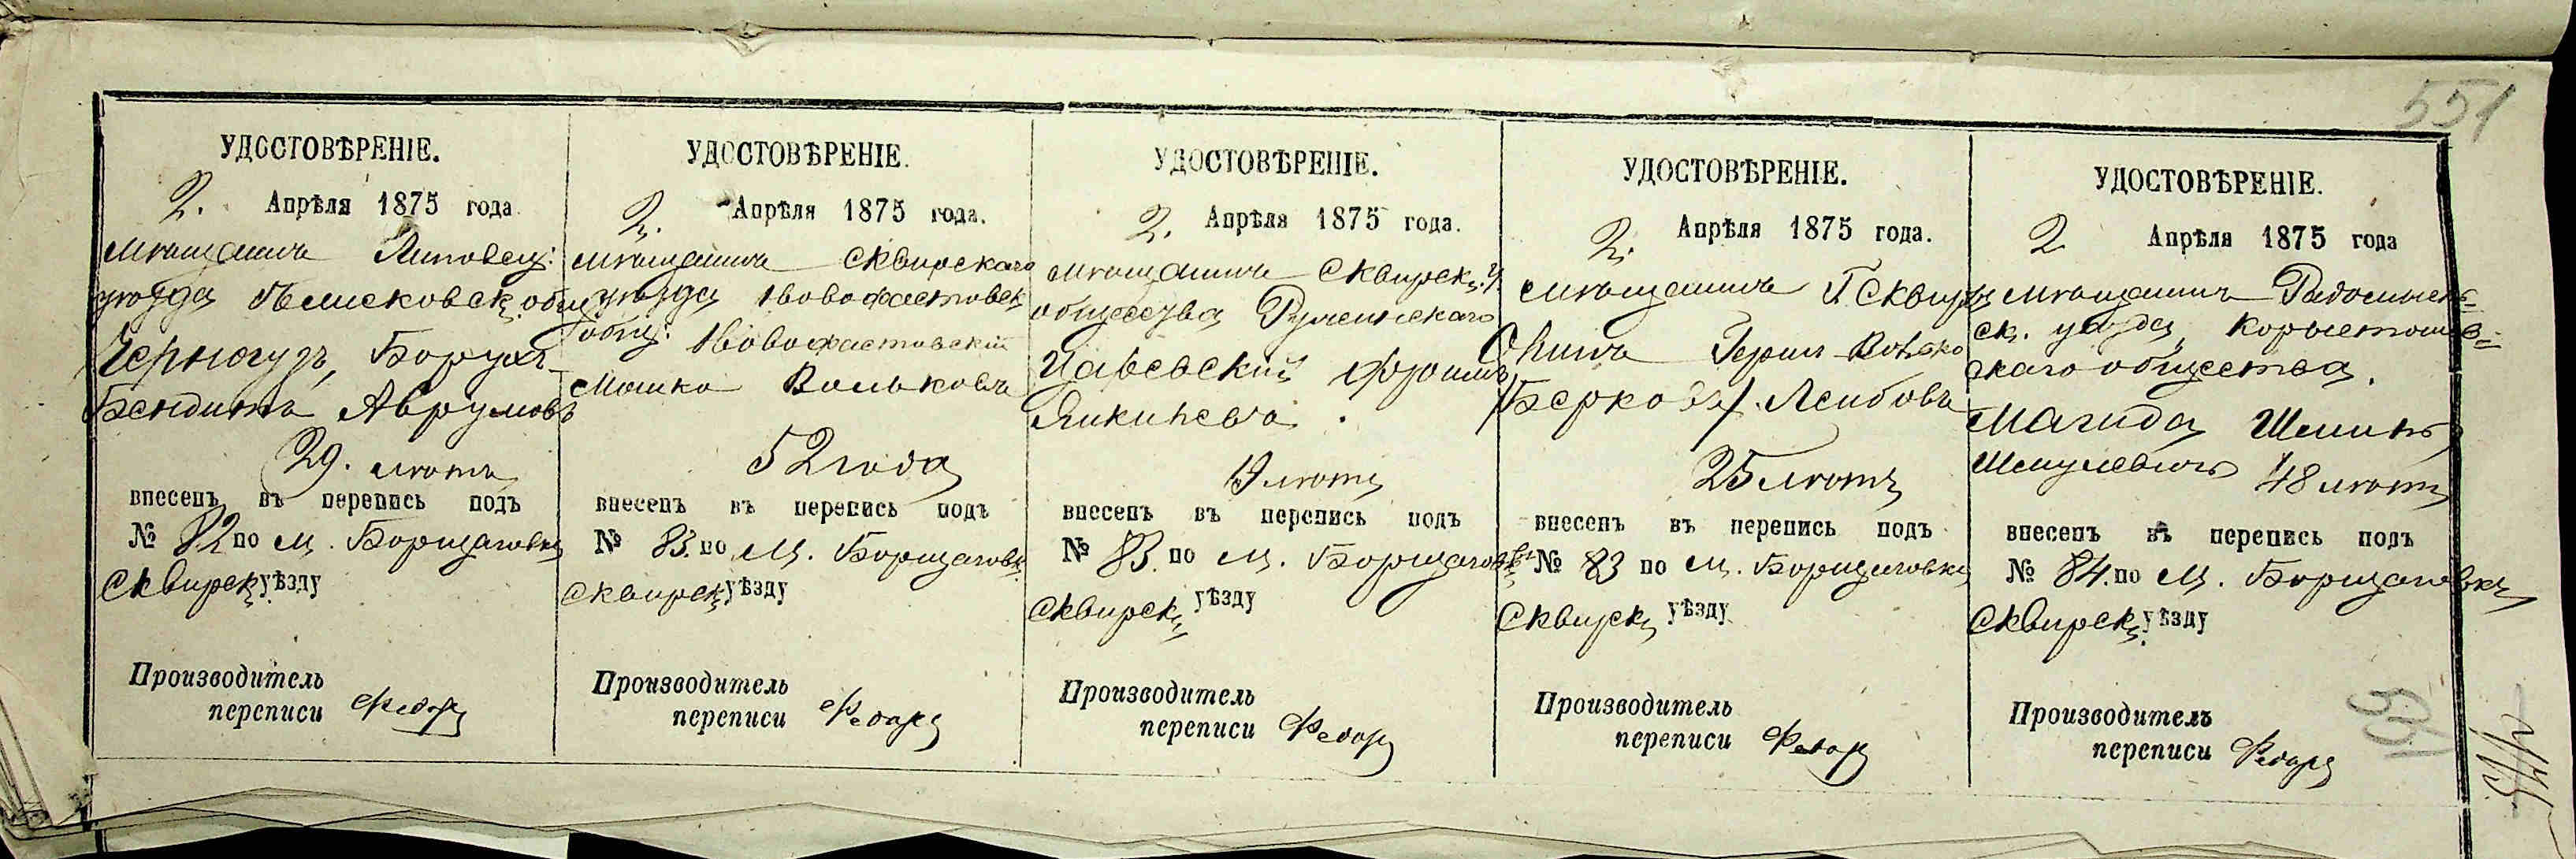 551
УДОСТОВѢРЕНІЕ.
2. Апрѣля 1875 года
мѣщанинъ Липовец:
уѣзда общ.
Черногузъ, Борухъ-
Бендитъ Аврумовъ
29. лѣтъ
внесенъ въ перепись подъ
№ 82 по м. Борщаговкѣ
Сквирск. уѣзду
Производитель
переписи
УДОСТОВѢРЕНІЕ.
2. Апрѣля 1875 года.
мѣщанинъ Сквирскаго
уѣзда Новофастовск.
общ: Новофастовскій
Мошко Вольковъ
52 года
внесенъ въ перепись подъ
№ 83. по м. Борщаговк.
Сквирск. уѣзду
Производитель
переписи
УДОСТОВѢРЕНІЕ.
2. Апрѣля 1875 года.
мѣщанинъ Сквирск. у.
общества
Фроимъ
19 лѣтъ
внесенъ въ перепись подъ
№ 83. по м. Борщаговкѣ
Сквирск. уѣзду
Производитель
переписи
УДОСТОВѢРЕНІЕ.
2. Апрѣля 1875 года.
мѣщанинъ Г. Сквиры
Герш
/Берковъ/. Лейбовъ
25 лѣтъ
внесенъ въ перепись подъ
№ 83 по м. Борщаговкѣ
Сквирск. уѣзду
Производитель
переписи
УДОСТОВѢРЕНІЕ.
2 Апрѣля 1875 года
мѣщанинъ Радомысль-
ск. уѣзда, Коростышев-
скаго общества.
Магида
48 лѣтъ
внесенъ въ перепись подъ
№ 84. по м. Борщаговкѣ
Сквирск. уѣзду
Производитель
переписи